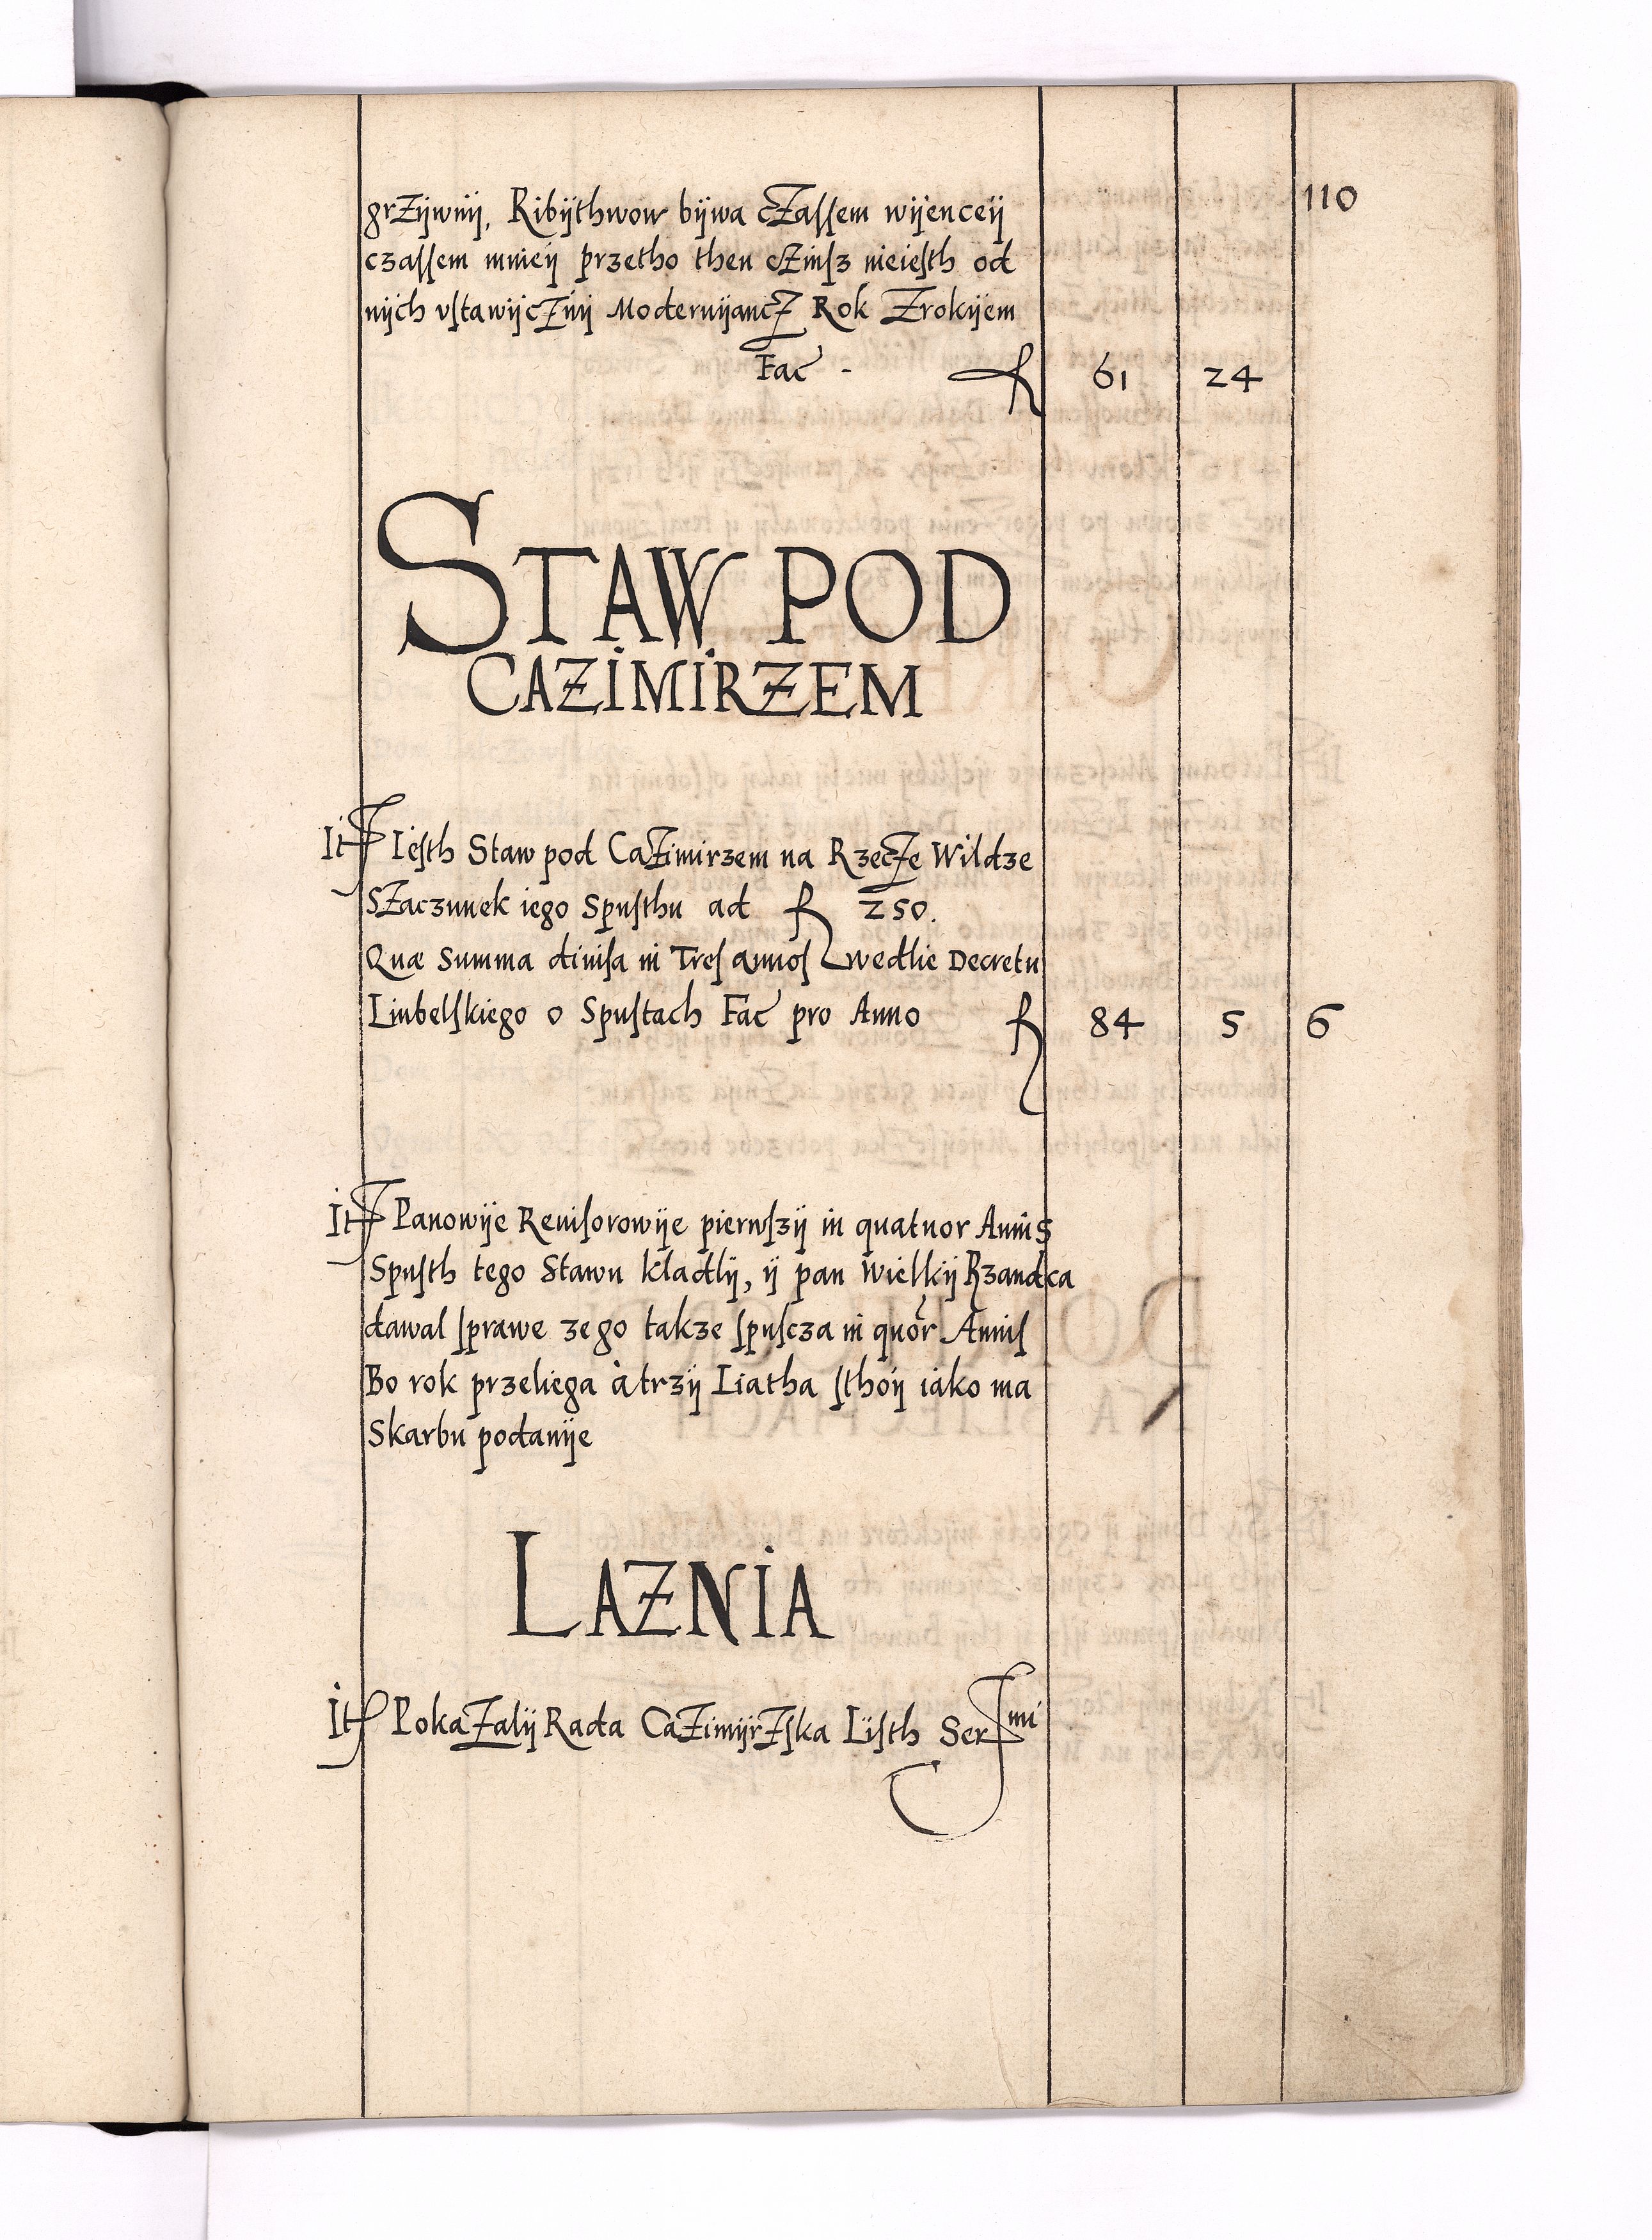 110
grZÿwnÿ, Ribÿthwow bÿwa cZassem wÿenceÿ
czassem mnieÿ przetho then cZinsz nieiesth od
nÿch vstawÿcZnÿ ModernÿancZ Rok Zrokÿem
Fac - fl 61 24
STAW POD
CAZIMIRZEM
It Iesth Staw pod CaZimirzem na RzecZe Wildze
SZaczunek iego Spusthu ad fl 250.
Quæ Summa diuisa in Tres annos wedlie Decretu
Liubelskiego o Spustach Fac pro Anno fl 84 5 6
It Panowÿe Reuisorowÿe pierwszÿ in quatuor Annis
Spusth tego Stawu kladlÿ, ÿ pan Wielkÿ Rzandca
dawal sprawe zego takze spuscza in quor Annis
Bo rok przeliega à trzÿ Liatha sthoÿ iako ma
Skarbu podanÿe
LAZNIA
It PokaZalÿ Rada CaZimÿrZska Lÿsth Sermi